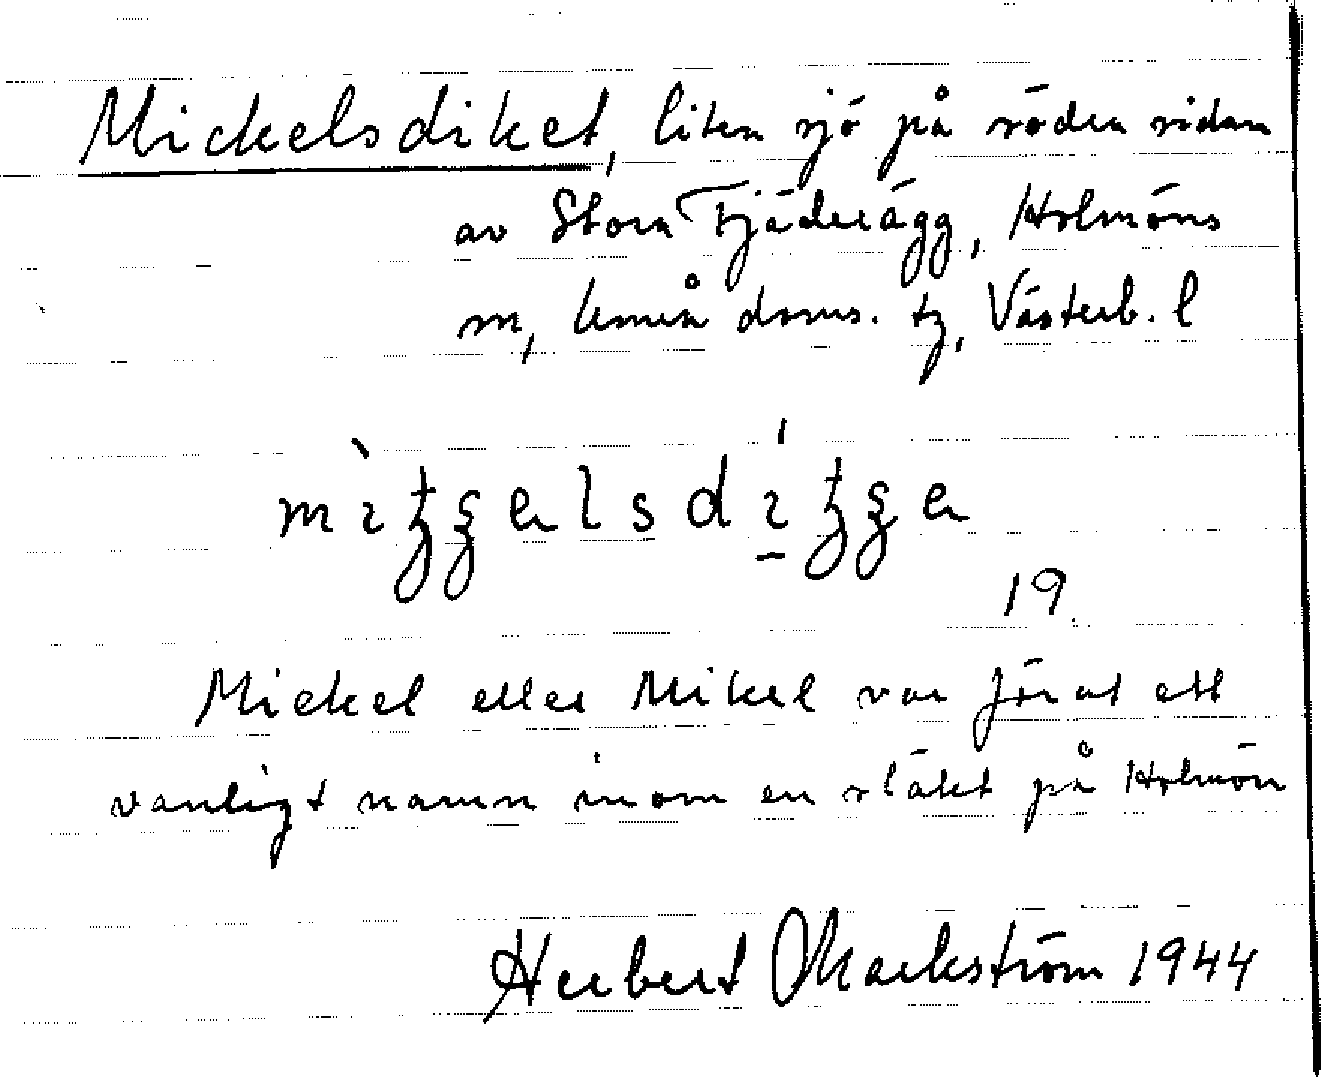 Mickelsdiket, liten sjö på södra sidan
av Stora Fjäderägg, Holmöns
sn, Umeå doms. tg, Västerb. l
19.
Mickel eller Mikel var förut ett
vanligt namn inom en släkt på Holmön
Herbert Markström 1944